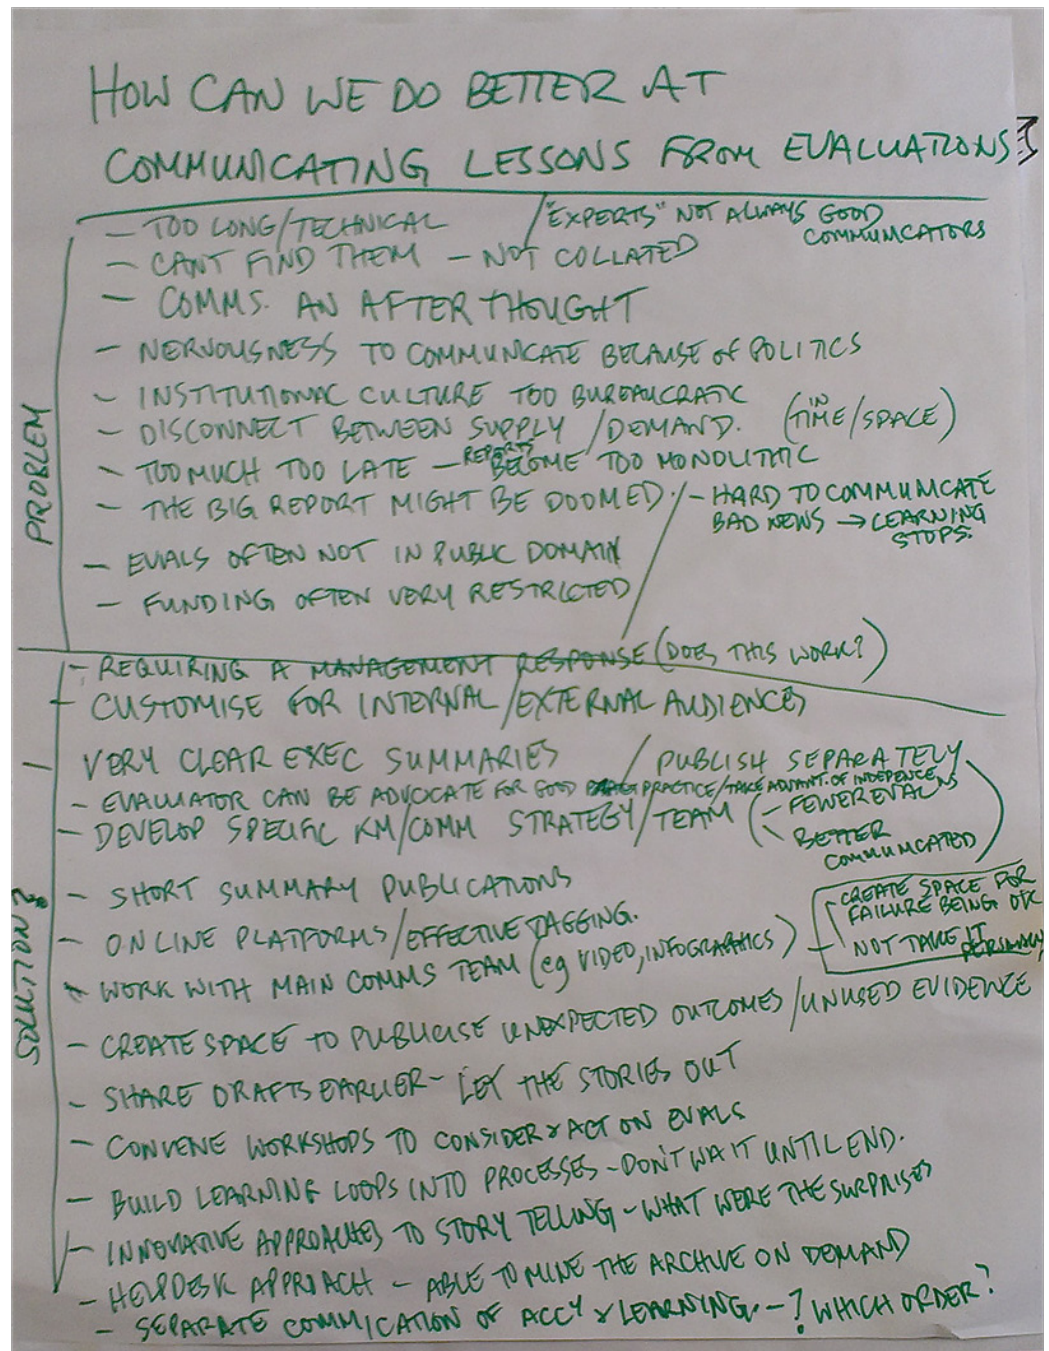 HOW CAN WE DO BETTER AT
COMMUNICATING LESSONS FROM EVALUATIONS
PROBLEM
- TOO LONG/TECHNICAL / "EXPERTS" NOT ALWAYS GOOD COMMUNICATORS
- CANT FIND THEM - NOT COLLATED
- COMMS. AN AFTER THOUGHT
- NERVOUSNESS TO COMMUNICATE BECAUSE OF POLITICS
- INSTITUTIONAL CULTURE TOO BUREAUCRATIC
- DISCONNECT BETWEEN SUPPLY/DEMAND. (IN TIME/SPACE)
- TOO MUCH TOO LATE - REPORTS BECOME TOO MONOLITHIC
- THE BIG REPORT MIGHT BE DOOMED.
/ - HARD TO COMMUNICATE
BAD NEWS → LEARNING
STOPS.
- EVALS OFTEN NOT IN PUBLIC DOMAIN
- FUNDING OFTEN VERY RESTRICTED
SOLUTION?
- REQUIRING A MANAGEMENT RESPONSE (DOES THIS WORK?)
- CUSTOMISE FOR INTERNAL/EXTERNAL AUDIENCES
- VERY CLEAR EXEC SUMMARIES / PUBLISH SEPARATELY
- EVALUATOR CAN BE ADVOCATE FOR GOOD PRACTICE/TAKE ADVANT. OF INDEPENCE
- DEVELOP SPECIFIC KM/COMM STRATEGY/TEAM
(- FEWER EVALNS
- BETTER
COMMUNCATED)
- SHORT SUMMARY PUBLICATIONS
- ONLINE PLATFORMS/EFFECTIVE TAGGING.
- WORK WITH MAIN COMMS TEAM (eg VIDEO, INFOGRAPHICS)
- CREATE SPACE FOR
FAILURE BEING OK
- NOT TAKE IT PERSONALLY
- CREATE SPACE TO PUBLICISE UNEXPECTED OUTCOMES/UNUSED EVIDENCE
- SHARE DRAFTS EARLIER - LET THE STORIES OUT
- CONVENE WORKSHOPS TO CONSIDER & ACT ON EVALS
- BUILD LEARNING LOOPS INTO PROCESSES - DON'T WAIT UNTIL END.
- INNOVATIVE APPROACHES TO STORY TELLING - WHAT WERE THE SURPRISES
- HELPDESK APPROACH - ABLE TO MINE THE ARCHIVE ON DEMAND
- SEPARATE COMMICATION OF ACCY & LEARNING. - ? WHICH ORDER?